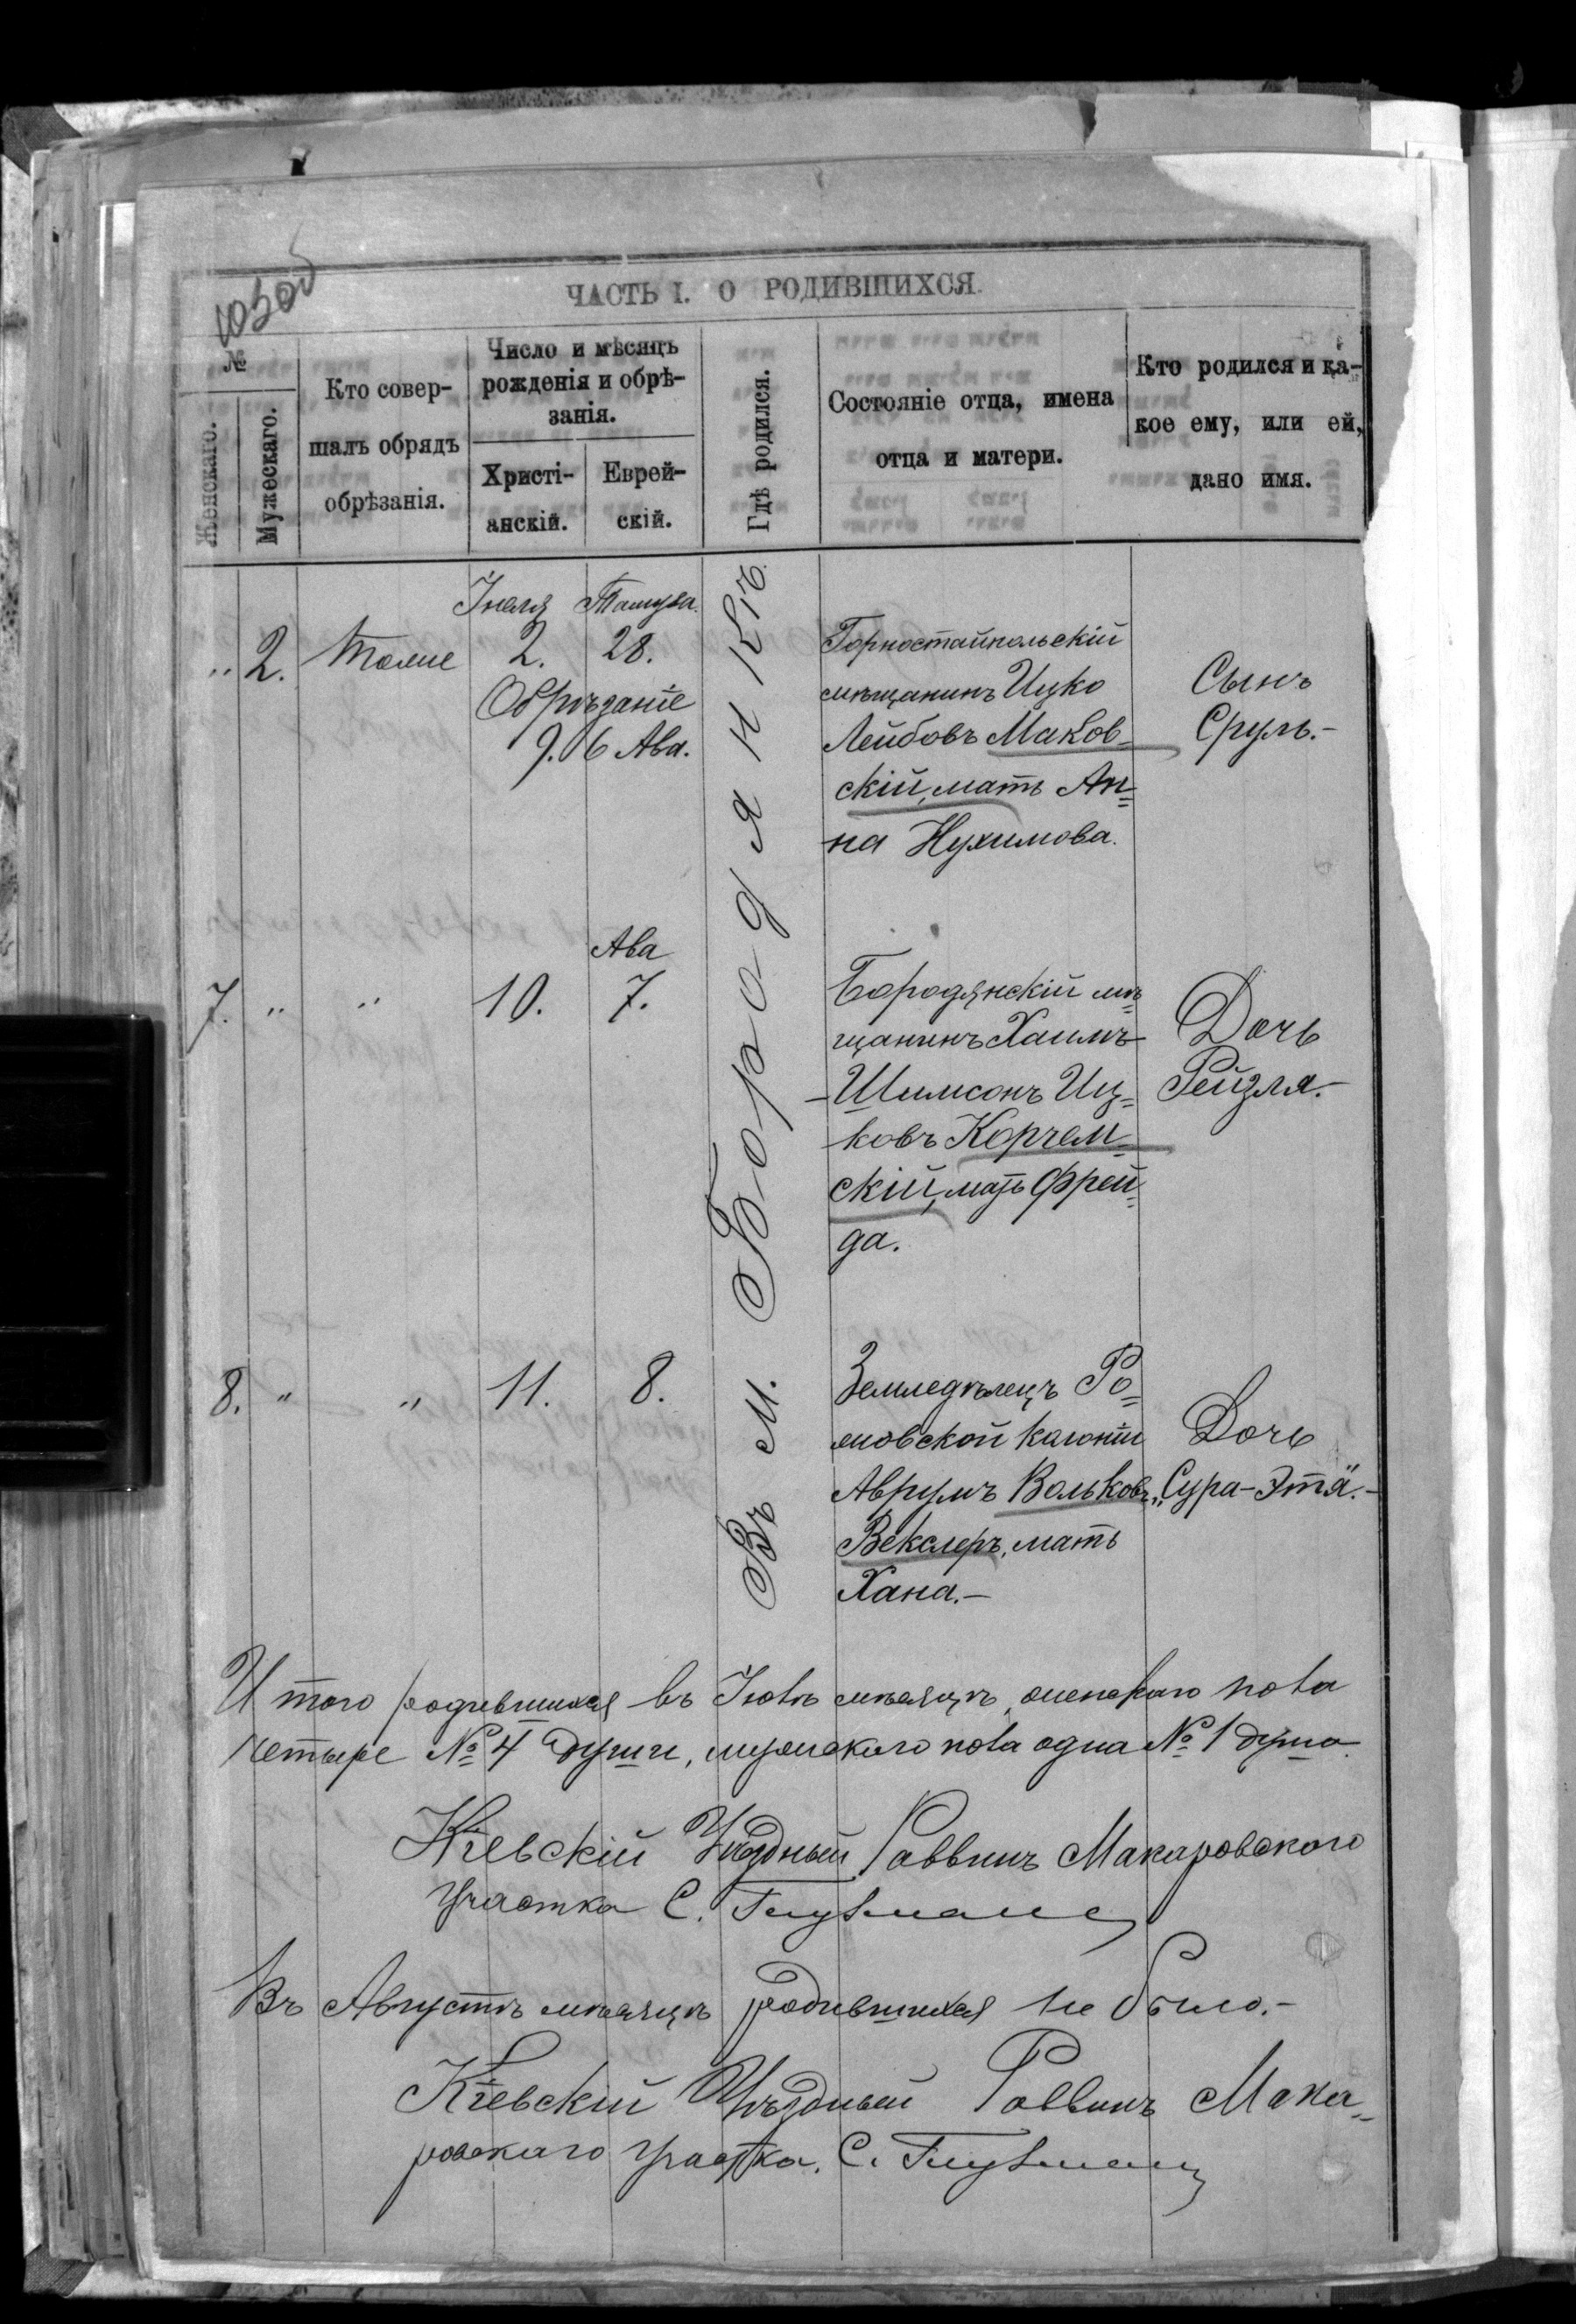 1030об
ЧАСТЬ I. О РОДИВШИХСЯ.
№
Женскаго.
Мужескаго.
Кто совер-
шалъ обрядъ
обрѣзанія.
Число и мѣсяцъ
рожденія и обрѣ-
занія.
Христі-
анскій.
Еврей-
скій.
Гдѣ родился.
Состояніе отца, имена
отца и матери.
Кто родился и ка-
кое ему, или ей,
дано имя.
Въ м. Бородянкѣ.
Іюля Тамуза.
„ 2. Тотъ же 2. 28.
Обрѣзаніе
9. 6 Ава.
Горностайпольскій
мѣщанинъ Ицко
Лейбовъ Маков-
скій, мать Ан-
на Нухимова.
Сынъ
Сруль.-
Ава
7. „ „ 10. 7.
Бородянскій мѣ-
щанинъ Хаимъ-
-Шимсонъ Иц-
ковъ Корчем-
скій, мать Фрей-
да.
Дочь
Рейзля.-
8. „ „ 11. 8.
Земледѣлецъ Ро-
мовской колоніи
Аврумъ Вольковъ
Векслеръ, мать
Хана.-
Дочь
„Сура-Этя“.-
Итого родившихся въ Іюлѣ мѣсяцѣ, женскаго пола
четыре № 4 души, мужскаго пола одна № 1 душа.
Кіевскій Уѣздный Раввинъ Макаровского
участка С. Глузманъ
Въ Августѣ мѣсяцѣ родившихся не было.-
Кіевскій Уѣздный Раввинъ Мака-
ровскаго участка. С. Глузманъ